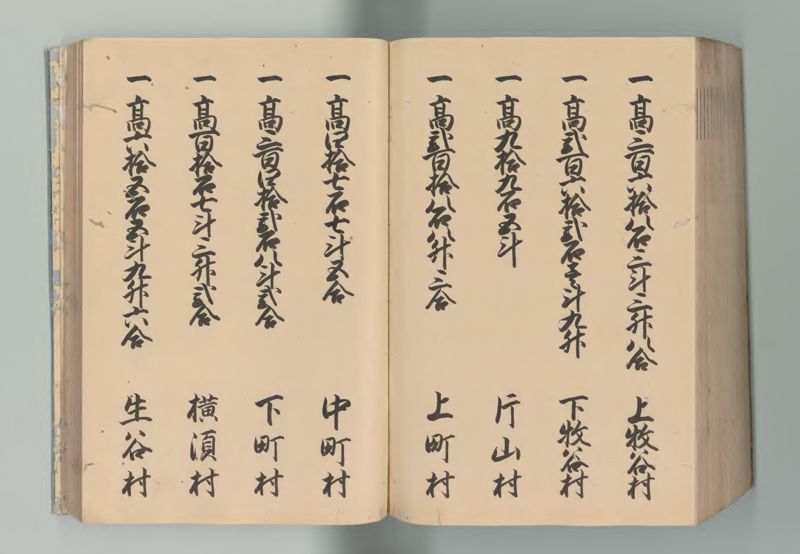 一高三百六拾八石三斗三升八合 上牧谷村
一高弐百六拾弐石壱斗九升 下牧谷村
一高九拾九石五斗 片山村
一高弐百拾八石八升三合 上町村
一高四拾七石七斗五合 中町村
一高三百四拾弐石八斗弐合 下町村
一高百拾石七斗三升弐合 横須村
一高六拾五石五斗九升六合 生谷村